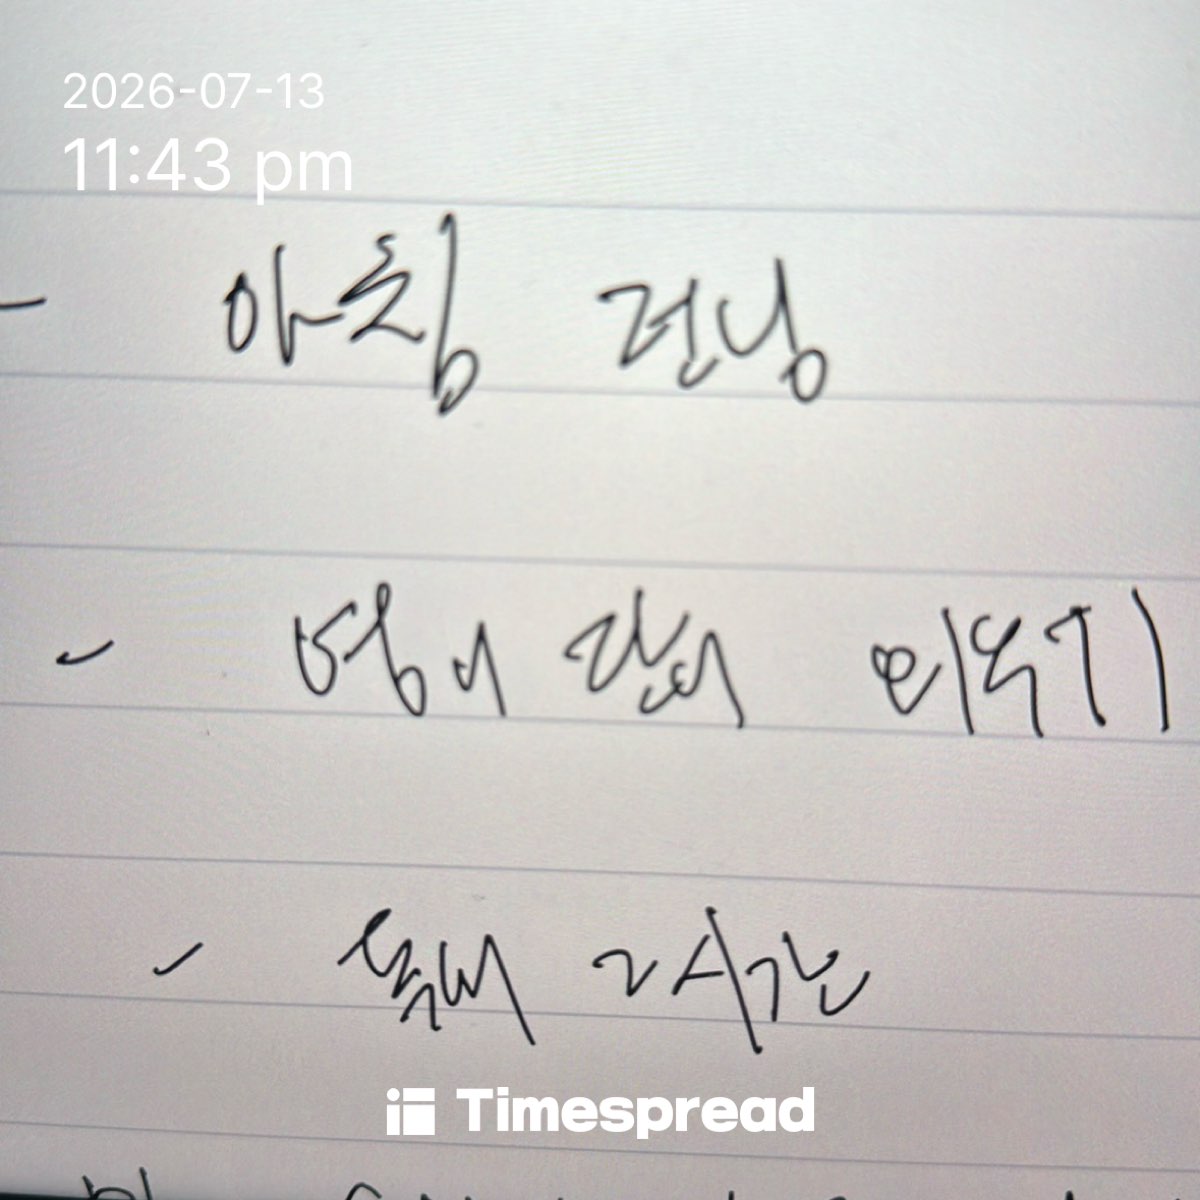 2026-07-13
11:43 pm
- 아침 러닝
- 영어 단어 외우기
- 독서 2시간
Timespread